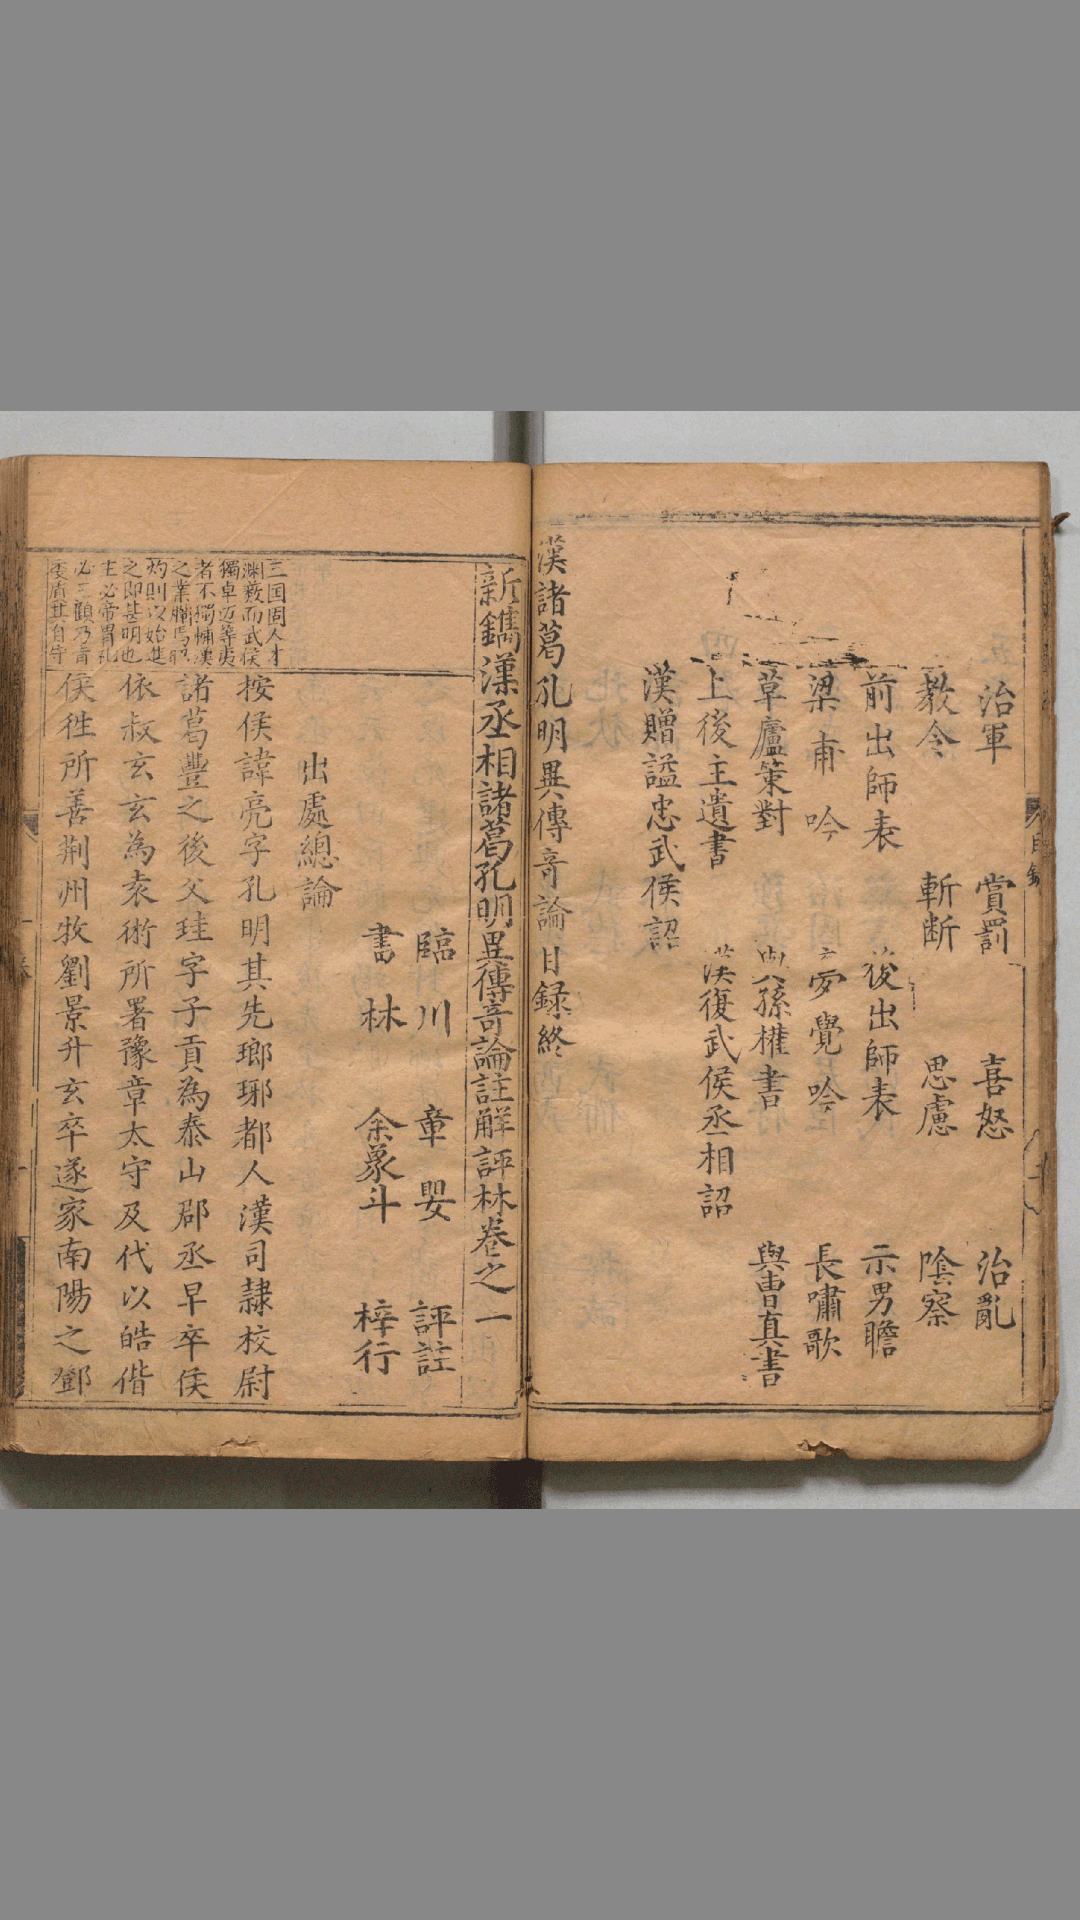 治軍 賞罰 喜怒 治亂
教令 斬断 思慮 陰察
前出師表 後出師表 示男瞻
梁甫吟 夢覺吟 長嘯歌
草廬策對 與孫權書 與曹真書
上後主遺書 漢復武侯丞相詔
漢贈謚忠武侯詔
漢諸葛孔明異傳奇論目録終
新鐫漢丞相諸葛孔明異傳奇論註解評林卷之一
臨川 章嬰 評註
書林 余象斗 梓行
出處總論
三国固人才
渊藪而武侯
獨卓迈等夷
者不獨輔漢
之業
灼則以始進
之即甚明也
主必帝胄
必三顧乃肯
委質其自守
按侯諱亮字孔明其先瑯琊都人漢司隷校尉
諸葛豐之後父珪字子貢為泰山郡丞早卒侯
依叔玄玄為袁術所署豫章太守及代以皓偕
侯徃所善荆州牧劉景升玄卒遂家南陽之鄧